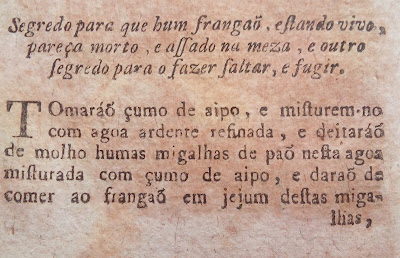 Segredo para que hum frangaõ, eſtando vivo,
pareça morto, e aſſado na meza, e outro
ſegredo para o fazer ſaltar, e fugir.
TOmaráõ çumo de aipo, e miſturem-no
com agoa ardente refinada, e deitaráõ
de molho humas migalhas de paõ neſta agoa
miſturada com çumo de aipo, e daraõ de
comer ao frangaõ em jejum deſtas miga-
lhas,